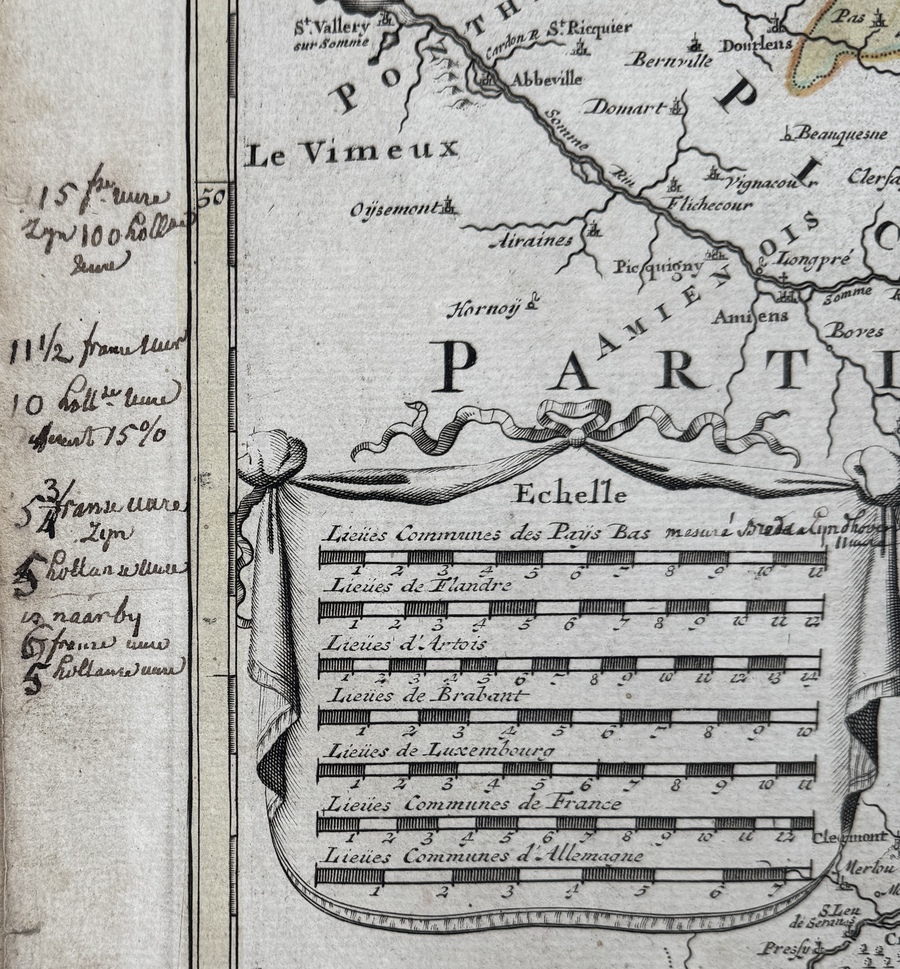 St. Vallery
sur Somme
PONTH
Cardon R.
St. Ricquier
Abbeville
Bernville
Dourlens
Pas
Domart
P
I
Beauquesne
Le Vimeux
Somme
Riv
Vignacour
Clerfa
Flichecour
50
Oÿsemont
Airaines
Picquigny
AMIENOIS
Longpré
Somme R
Amiens
Hornoÿ
Boves
PARTI
15 franse uure
Zyn 100 holl
uure
11 1/2 franse uur
10 hollse uure
15%
5 3/4 franse uure
Zyn
5 hollanse uure
naar by
6 franse uure
5 hollanse uure
Echelle
Lieües Communes des Païs Bas mesuré Breda Eyndhoven
1 2 3 4 5 6 7 8 9 10 11
Lieües de Flandre
1 2 3 4 5 6 7 8 9 10 11 12
Lieües d'Artois
1 2 3 4 5 6 7 8 9 10 11 12 13 14
Lieües de Brabant
1 2 3 4 5 6 7 8 9 10
Lieües de Luxembourg
1 2 3 4 5 6 7 8 9 10 11
Lieües Communes de France
1 2 3 4 5 6 7 8 9 10 11 12
Lieües Communes d'Allemagne
1 2 3 4 5 6 7
Clermont
Merlou
S. Leu
de Serans
Presly